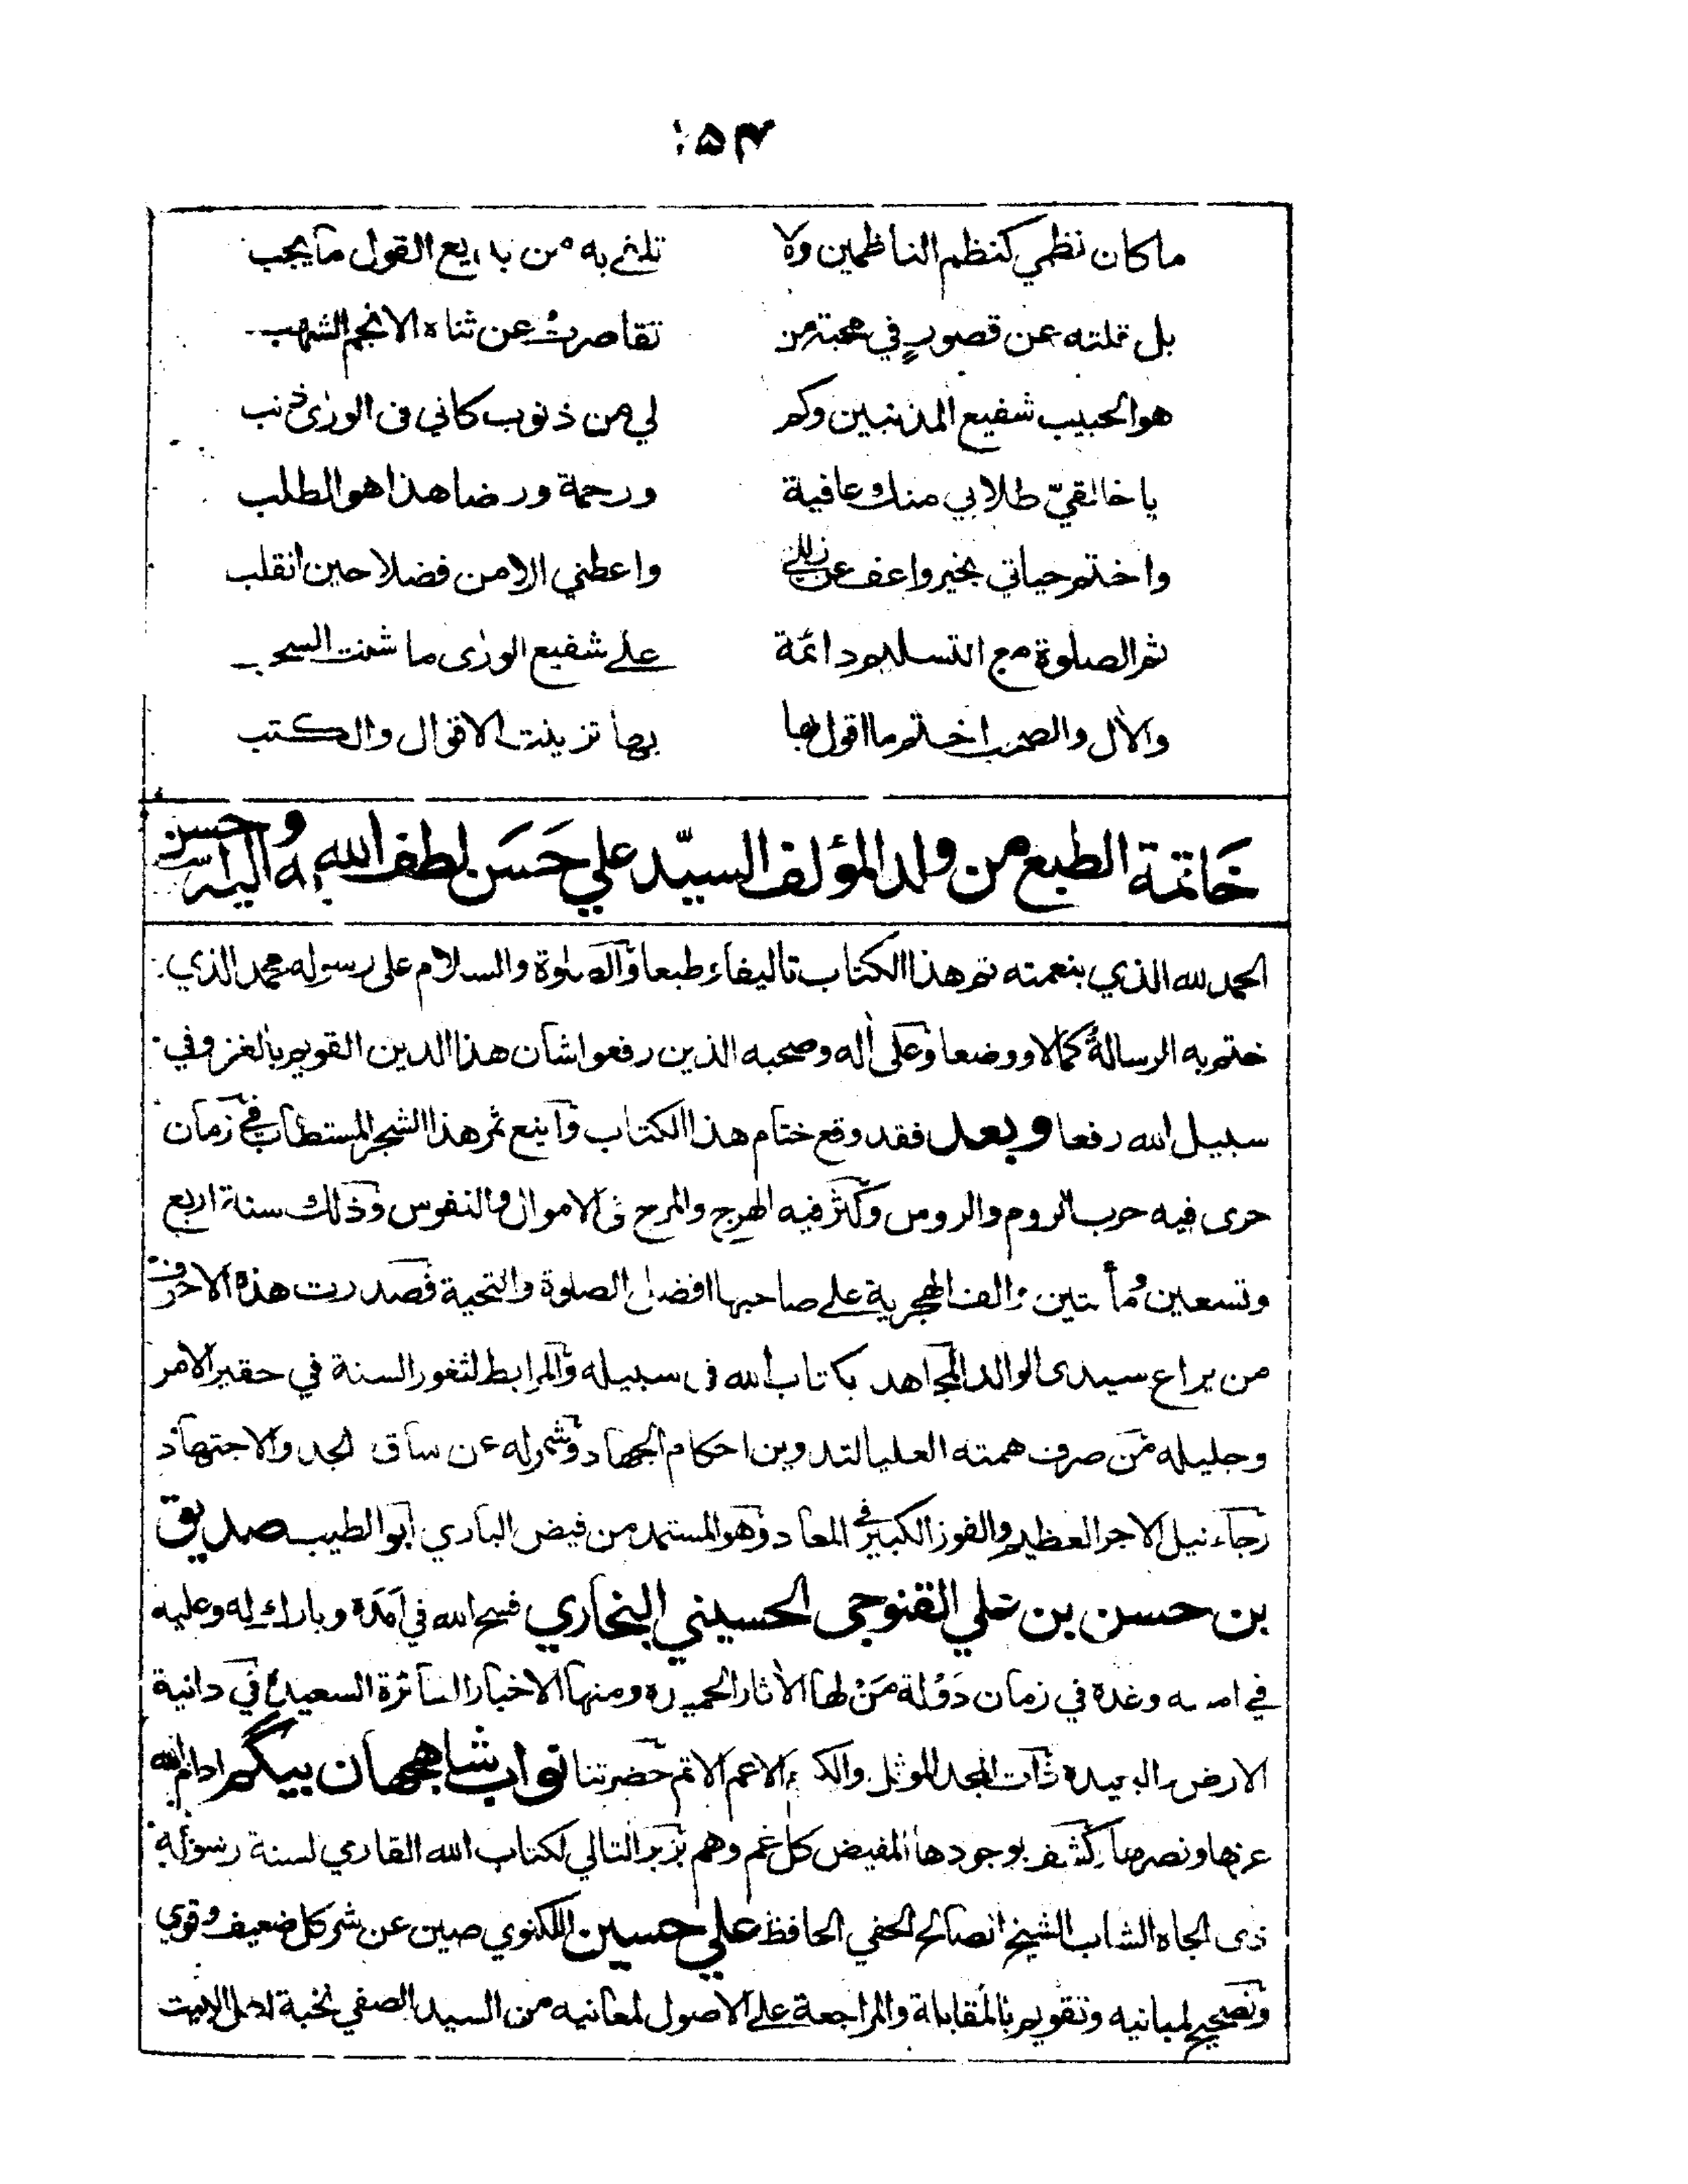 ١٥٤
ما كان نظمي كنظم الناظمين ولا تلفي به من بديع القول ما يجب
بل قلته عن قصورٍ في محبة من تقاصرت عن ثناه الانجم الشهب
هو الحبيب شفيع المذنبين وكم لي من ذنوب كاني في الورى ذنب
يا خالقيّ طلابي منك عافية ورحمة ورضا هذا هو الطلب
واختم حياتي بخير واعف عن زللي واعطني الامن فضلا حين انقلب
ثم الصلوة مع التسليم دائمة على شفيع الورى ما شنت السحب
والآل والصحب اختم ما اقول بها بها تزينت الاقوال والكتب
خاتمة الطبع من ولد المؤلف السيّد علي حَسَن لطف الله به وحسن اليه
الحمد لله الذي بنعمته تم هذا الكتاب تاليفا وطبعا والصلوة والسلام على رسوله محمد الذي
ختم به الرسالة كمالا ووضعا وعلى آله وصحبه الذين رفعوا شان هذا الدين القويم بالغزو في
سبيل الله رفعا وبعد فقد وقع ختام هذا الكتاب واينع ثمر هذا الشجر المستطاب في زمان
جرى فيه حرب الروم والروس وكثر فيه الهرج والمرج في الاموال والنفوس وذلك سنة اربع
وتسعين ومأتين والف الهجرية على صاحبها افضل الصلوة والتحية فصدرت هذه الاحرف
من يراع سيدى الوالد المجاهد بكتاب الله في سبيله والمرابط لثغور السنة في حقير الامر
وجليله من صرف همته العليا لتدوين احكام الجهاد وشمر له عن ساق الجد والاجتهاد
رجاء نيل الاجر العظيم والفوز الكبير في المعاد وهو المستمد من فيض الباري ابو الطيب صديق
بن حسن بن علي القنوجي الحسيني البخاري فسح الله في اَمَده وبارك له وعليه
في امسه وغده في زمان دَوْلة مَنْ لها الآثار الحميده ومنها الاخبار السائرة السعيدة في دانية
الارض والبعيدة ذات المجد الموثل والكرم الاعم الاتم حضرتنا نواب شاهجهان بيگم ادام الله
عزها ونصرها وكشف بوجودها المفيض كل غم وهم بزبر التالي لكتاب الله القاري لسنة رسوله
ذى الجاه الشاب الشيخ الصالح الحفي الحافظ علي حسين اللكنوي صين عن شر كل ضعيف وقوي
وتصحيح لمبانيه وتقويم بالمقابلة والمراجعة على الاصول لمعانيه من السيد الصفي نخبة اهل البيت